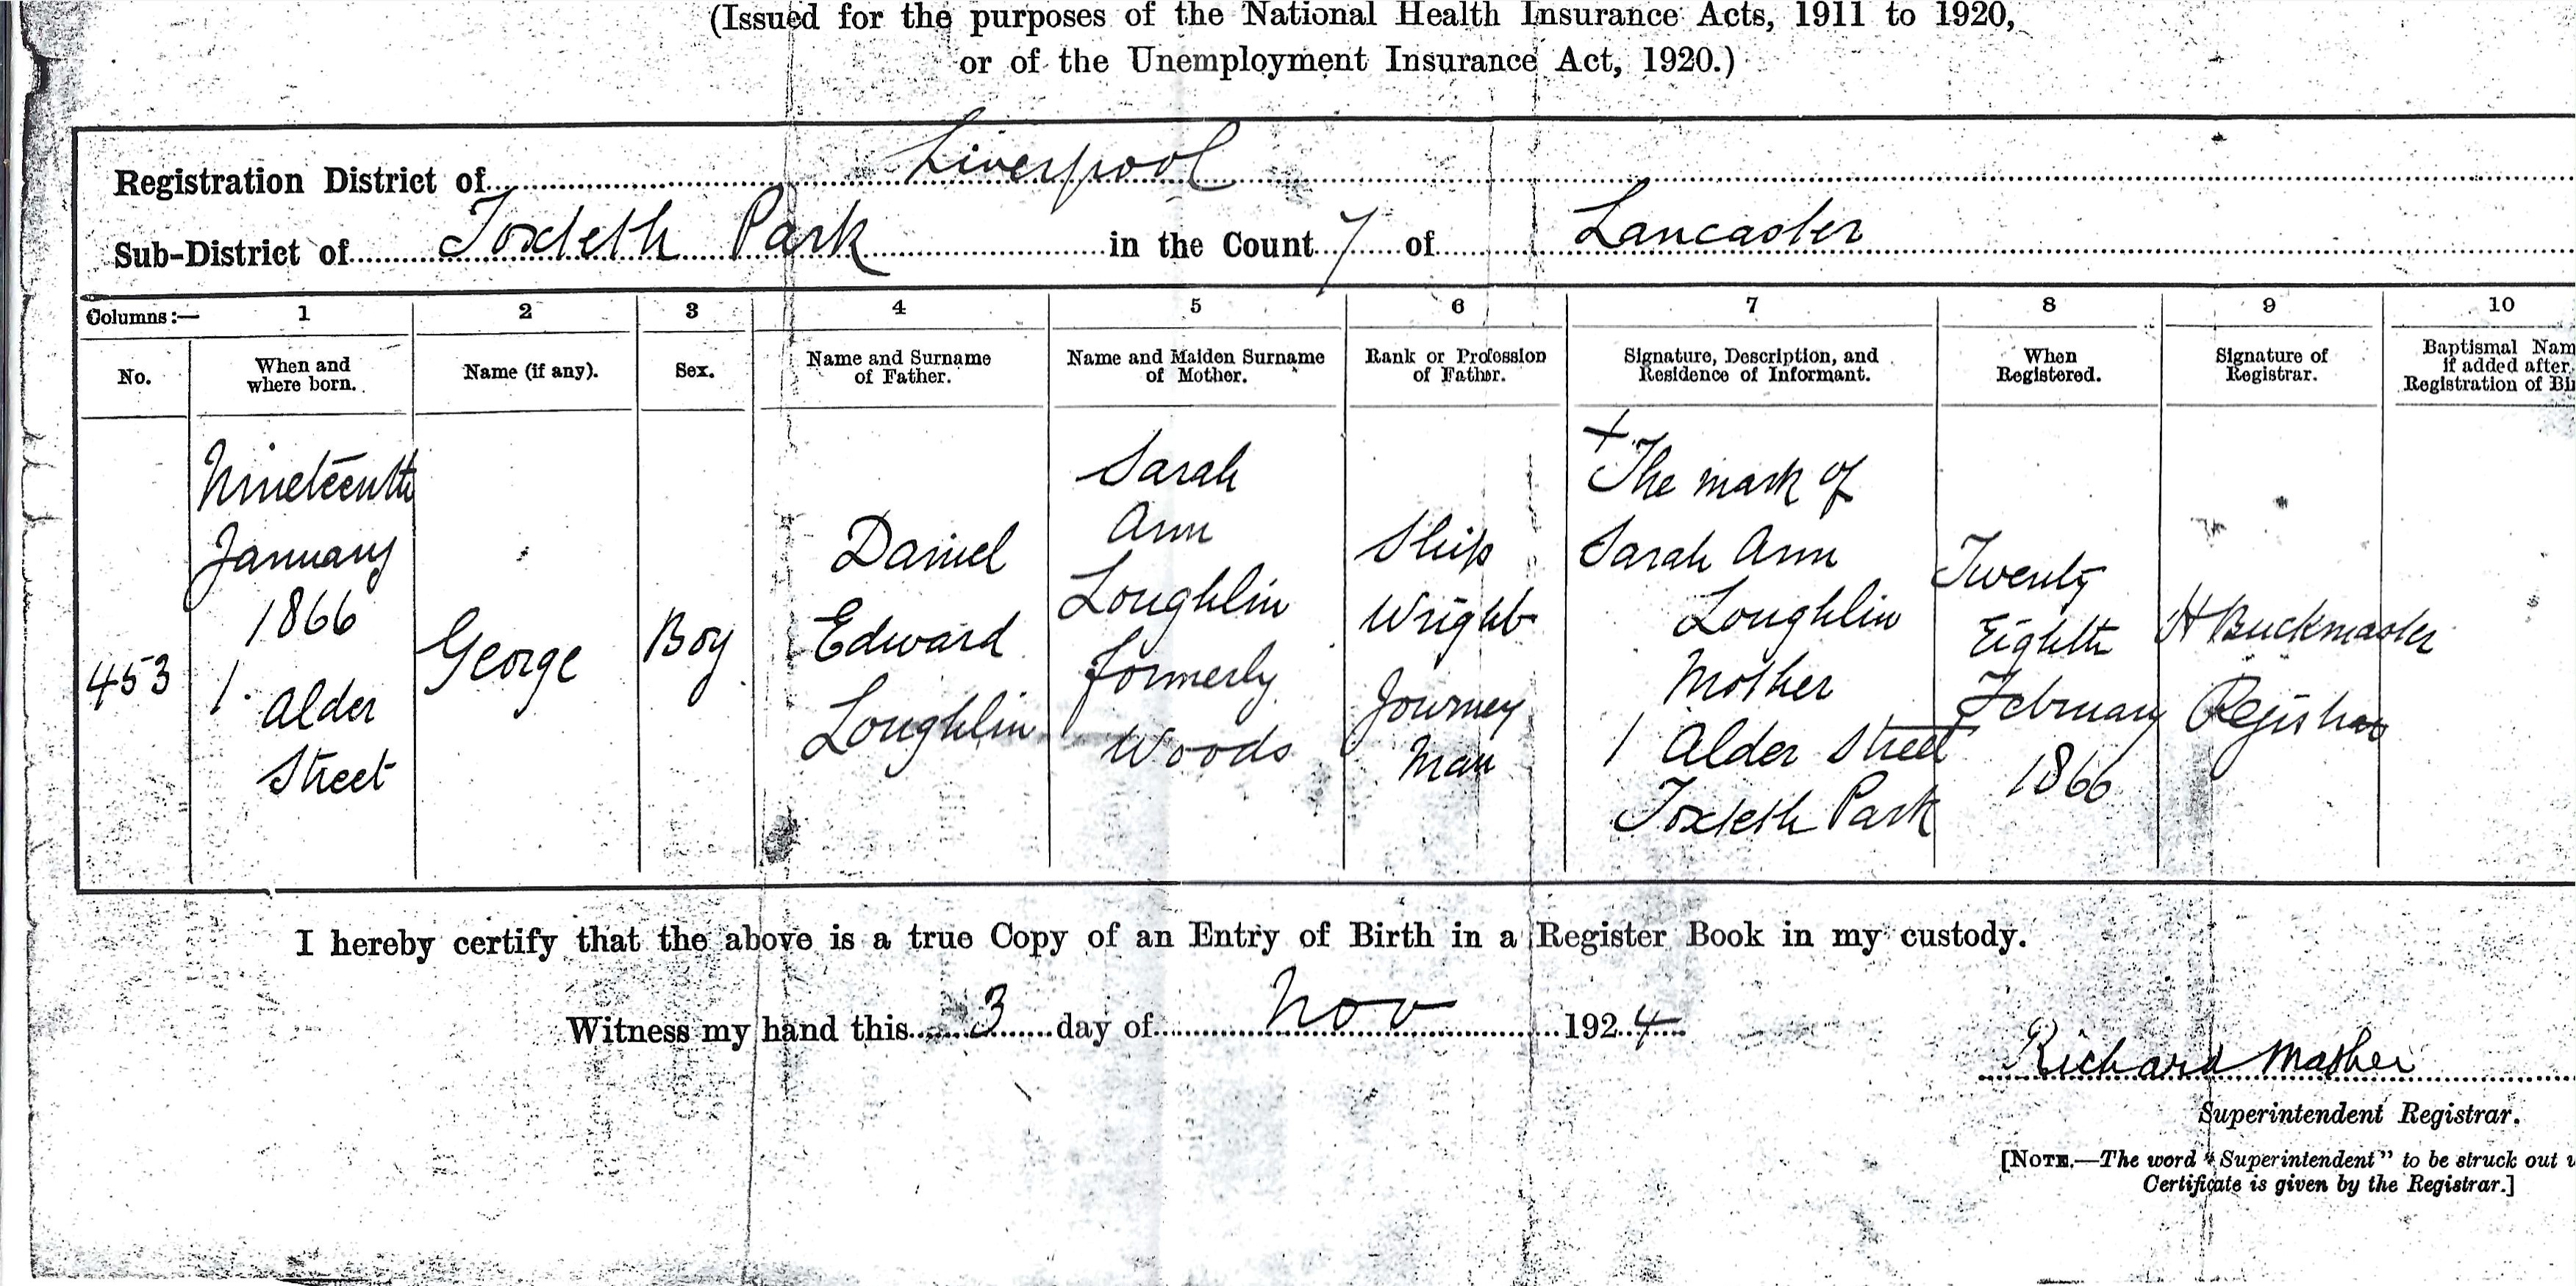 (Issued for the purposes of the National Health Insurance Acts, 1911 to 1920,
or of the Unemployment Insurance Act, 1920.)
Registration District of Liverpool
Sub-District of Toxteth Park in the County of Lancaster
Columns:— 1 2 3 4 5 6 7 8 9 10
No.
When and
where born.
Name (if any).
Sex.
Name and Surname
of Father.
Name and Maiden Surname
of Mother.
Rank or Profession
of Father.
Signature, Description, and
Residence of Informant.
When
Registered.
Signature of
Registrar.
Baptismal Nam
if added after
Registration of Bi
453
Nineteenth
January
1866
1. Alder
Street
George
Boy
Daniel
Edward
Loughlin
Sarah
Ann
Loughlin
formerly
Woods
Ship
Wright
Journey
Man
X The mark of
Sarah Ann
Loughlin
Mother
1 Alder Street
Toxteth Park
Twenty
Eighth
February
1866
H Buckmaster
Registrar
I hereby certify that the above is a true Copy of an Entry of Birth in a Register Book in my custody.
Witness my hand this 3 day of Nov 1924
Richard Mather
Superintendent Registrar.
[NOTE.—The word "Superintendent" to be struck out
Certificate is given by the Registrar.]